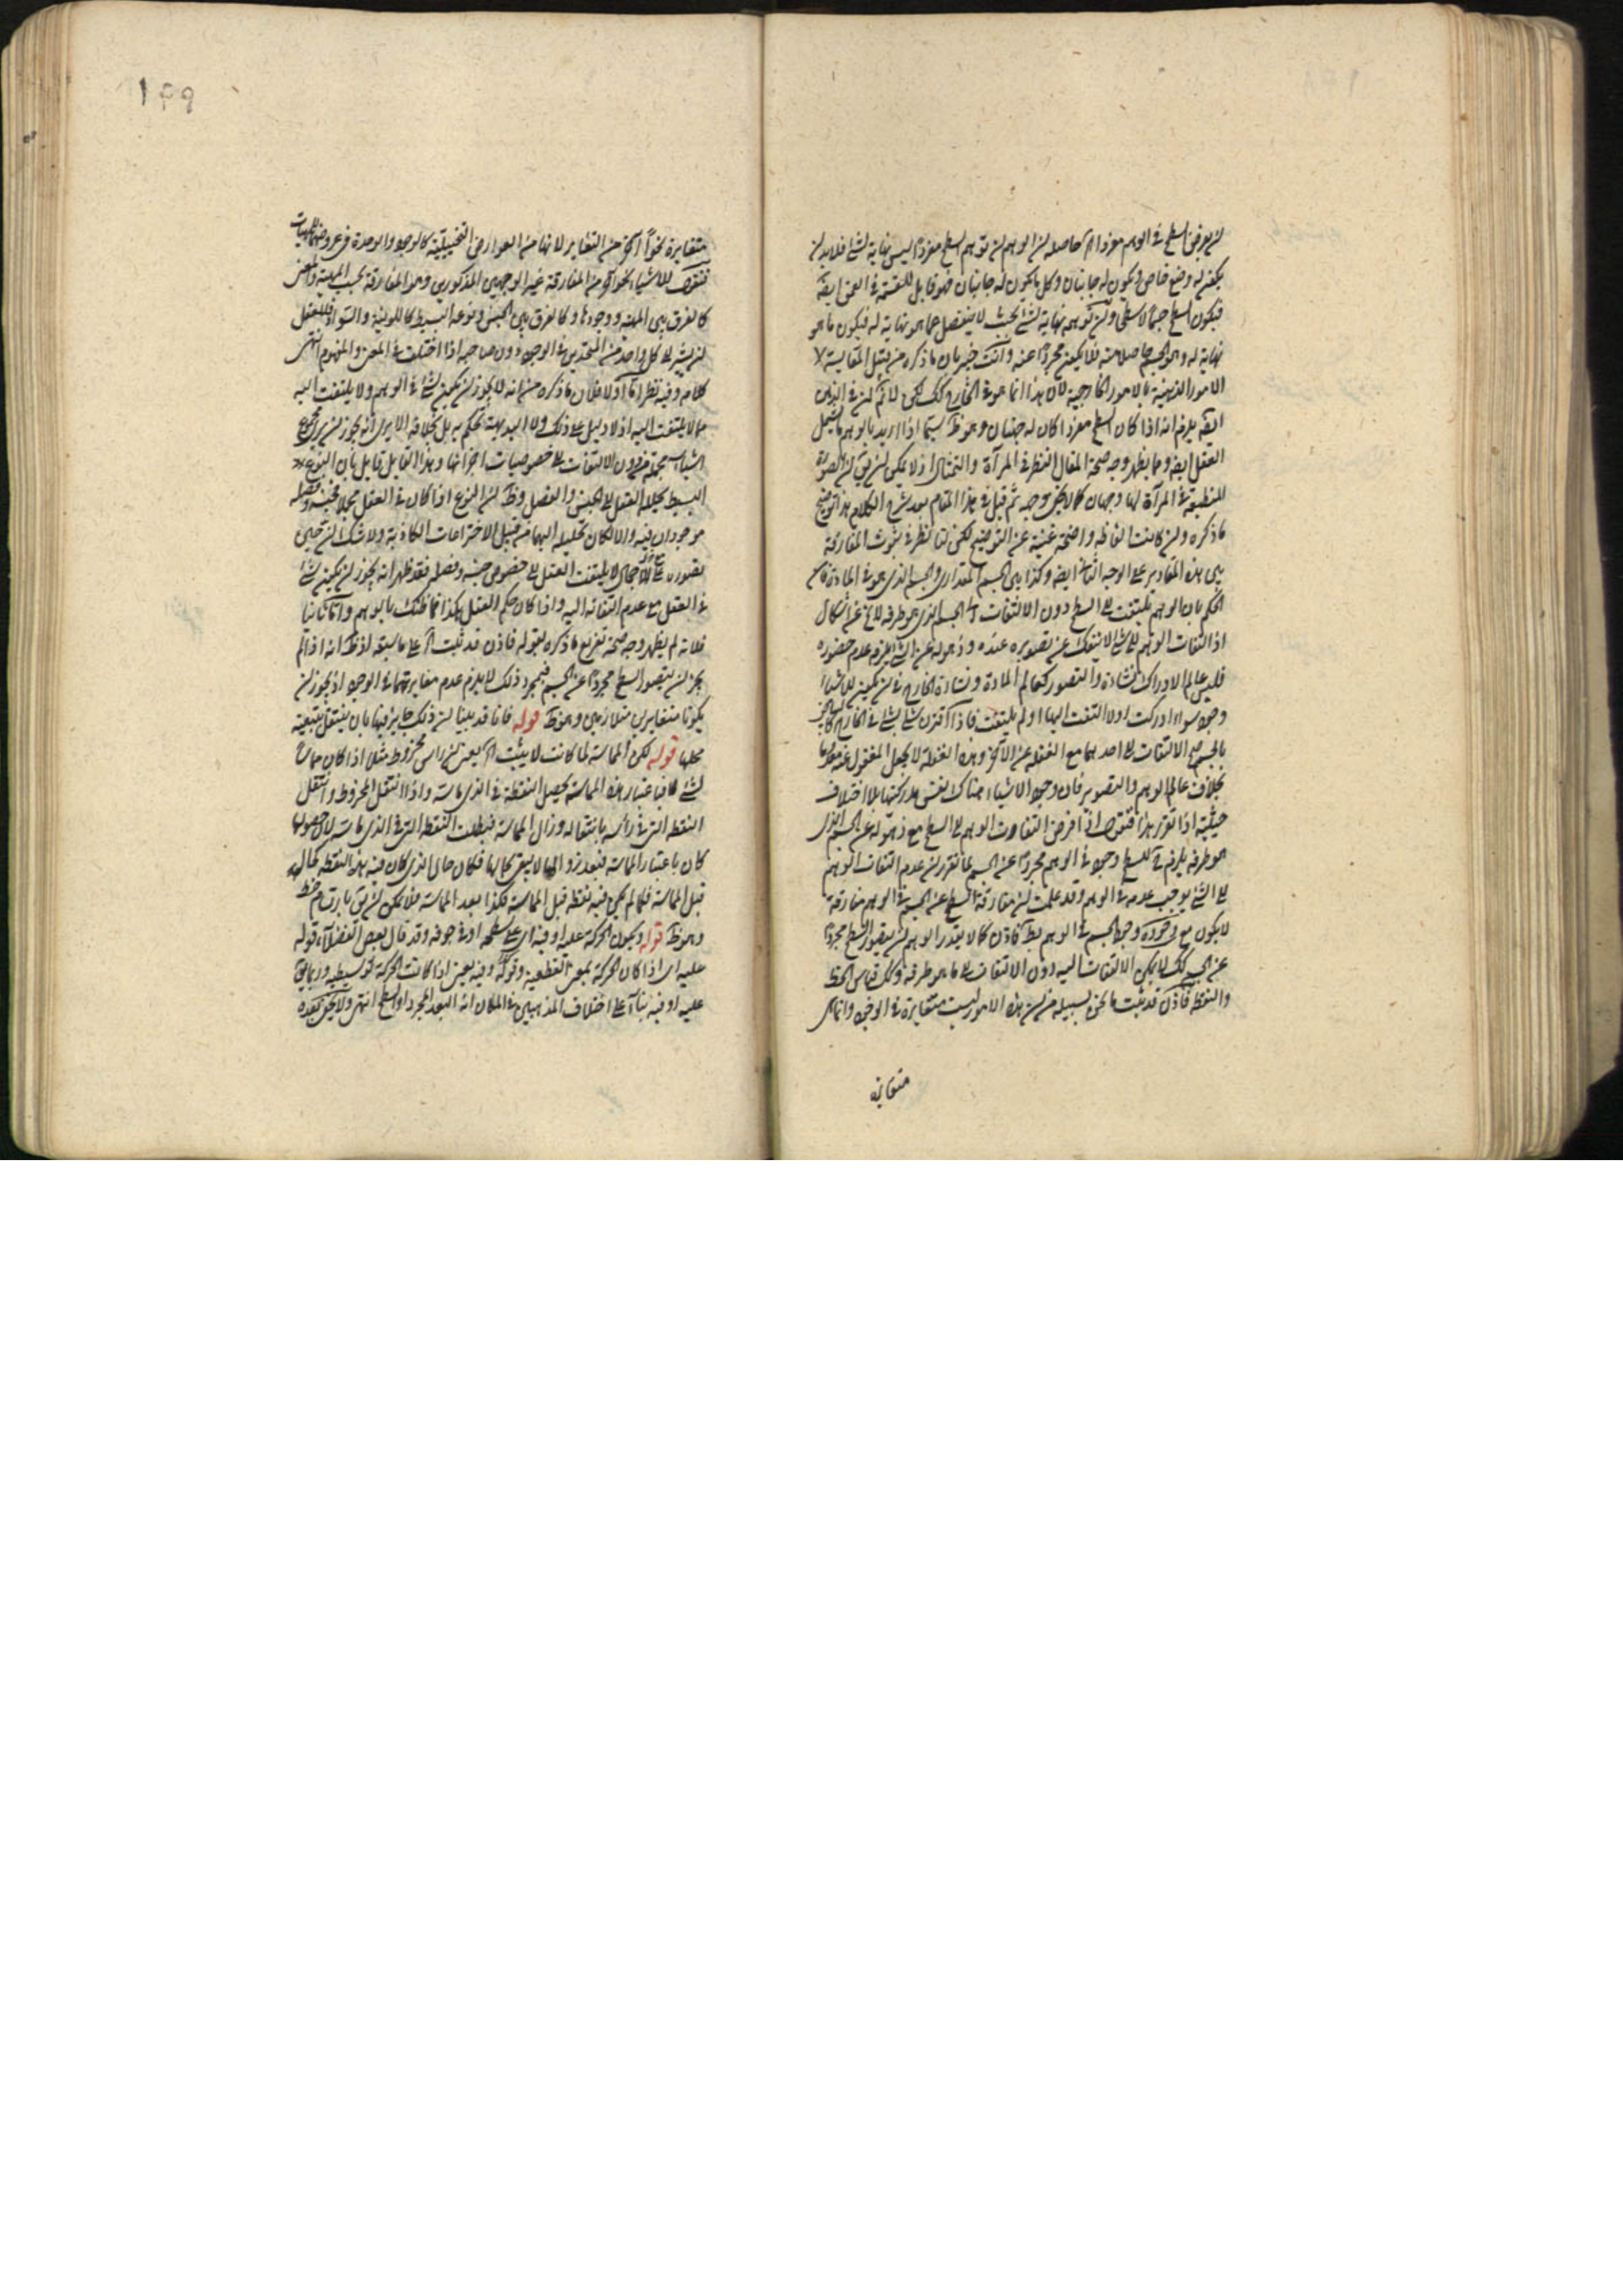 لن يعرض السطح في الوهم مفردا الخ حاصله لن الوهم لن توهم السطح مفردا ليس نهاية لشئ فلابد لن
يكون له وضع خاص ويكون له جانبان وكل ما يكون له جانبان فهو قابل للقسمة في العمق ايضا
فيكون السطح جسما لا سطحا ولن توهمه نهاية لشئ بحيث لا ينفصل عما هو نهاية له فيكون ما هو
نهاية له وهو الجسم حاصلا معه فلا يكون مجردا عنه وانت خبير بان ما ذكره من قبيل المقايسة
الامور الذهنية بالامور الخارجية لان هذا انما هو في الخارج كك لكن لا نم لن في الذهن
ايضه يلزم انه اذا كان السطح مفردا كان له جهتان وهو ظ سيما اذا اريد بالوهم ما يشمل
العقل ايضه ومما يظهر وجه صحة المقال النظر في المرآة والتمثال اذ لا يمكن لن يق لن الصورة
المنطبعة في المرآة لها وجهان كما لا يخفى وجهه ثم قيل في هذا المقام بعد شرح الكلام هذا توضيح
ما ذكره ولن كانت الفاظه واضحة غنية عن التوضيح لكن لنا نظر في ثبوت المفارقة
بين هذه المقادير على الوجه الثاني ايضه وكذا بين الجسم المقداري والجسم الذي هو في المادة فان
الحكم بان الوهم يلتفت الى السطح دون الالتفات الى الجسم الذي هو طرفه لا يخ عن اشكال
اذ التفات الوهم الى الشئ لا ينفك عن تصويره عنده وذهوله عن الشئ يلزمه عدم حضوره
فليس عالم الادراك ونشأة التصور كعالم المادة ونشأة الخارج في لن يكون للاشياء
وجود سواء ادركت اولا التفت اليها او لم يلتفت فاذا اقترن شئ بشئ في الخارج
بالجسم الالتفات الى احدهما مع الغفلة عن الآخر وهذه الغفلة لا يجعل المغفول عنه معدوما
بخلاف عالم الوهم والتصوير فان وجود الاشياء هناك نفس مدركيتها بلا اختلاف
حيثية اذا تقرر هذا فنقول اذا فرض التفات الوهم الى السطح مع ذهوله عن الجسم الذي
هو طرفه يلزم للسطح وجود في الوهم مجردا عن الجسم لما تقرر لن عدم التفات الوهم
الى الشئ يوجب عدمه في الوهم وقد علمت لن مفارقة السطح عن الجسم في الوهم مفارقة
لا يكون مع وجوده وجود الجسم في الوهم بط فاذن كما لا يقدر الوهم لن يتصور السطح مجردا
عن الجسم كك لا يمكن الالتفات اليه دون الالتفات الى ما هو طرفه وكك قياس الخط
والنقطة فاذن قد ثبت ما نحن بسبيله من لن هذه الامور ليست متغايرة في الوجود وانما هي
متغايرة
١٤٩
متغايرة نحوا آخر من التغاير لانها من العوارض التحليلية كالوجود والوحدة في عروضهما للماهيات
فنقول للاشياء نحو آخر من المفارقة غير الوجهين المذكورين وهو المفارقة بحسب المهية والمعنى
كالفرق بين المهية ووجودها وكالفرق بين الجنس ونوعه البسيط كاللونية والسواد فللعقل
لن يشير الى كل واحد من المتحدين في الوجود دون صاحبه اذا اختلفت في المعنى والمفهوم انتهى
كلامه وفيه نظر اما اولا فلان ما ذكره من انه لا يجوز لن يكون لشئ في الوهم ولا يلتفت اليه
مما لا يلتفت اليه اذ لا دليل على ذلك ولا البديهة تحكم به بل بخلافه الا يرى انه يجوز لن يرى مجموع
اشياء مجتمعة دون الالتفات الى خصوصيات اجزائها وهذا القائل قايل بان النوع
البسيط يحلله العقل الى الجنس والفصل وظ لن النوع اذا كان في العقل مجملا فجنسه وفصله
موجودان فيه والا لكان تحليله اليهما من قبيل الاختراعات الكاذبة ولا شك لن حين
تصوره على الاجمال لا يلتفت العقل الى خصوص جنسه وفصله فقد ظهر انه يجوز لن يكون شئ
في العقل مع عدم التفاته اليه واذا كان حكم العقل هكذا فما ظنك بالوهم واما ثانيا
فلانه لم يظهر وجه صحة تفريع ما ذكره بقوله فاذن قد ثبت الخ على ما سبقه اذ ظ انه اذا لم
يجز لن يتصور السطح مجردا عن الجسم فبمجرد ذلك لا يلزم عدم مغايرتهما في الوجود اذ يجوز لن
يكونا متغايرين متلازمين وهو ظ قوله فانا قد بينا لن ذلك جايز فيها بان ينتقل بتبعية
محلها قوله لكن المماسة لما كانت لا يثبت الخ يعني لن راس مخروط مثلا اذا كان مماسا
لشئ فباعتبار هذه المماسة يحصل النقطة في الذي ماسه واذا انتقل المخروط وانتقل
النقطة التي في رأسه بانتقاله وزال المماسة فبطلت النقطة التي في الذي ماسه لان حصولها
كان باعتبار المماسة فبعد زوالها لا يبقى بحالها فكان حال الذي كان فيه هذه النقطة كحاله
قبل المماسة فلما لم يكن فيه نقطة قبل المماسة فكذا بعد المماسة فلا يمكن لن يق بارتسام خط
وهو ظ قوله ويكون الحركة عليه او فيه اي على سطحه او في جوفه وقد قال بعض الفضلاء قوله
عليه اي اذا كان الحركة بمعنى القطعية وقوله وفيه يعني اذا كانت الحركة توسطية وربما يق
عليه او فيه بناء على اختلاف المذهبين في المكان انه البعد المجرد او السطح انتهى ولا يخفى بعده